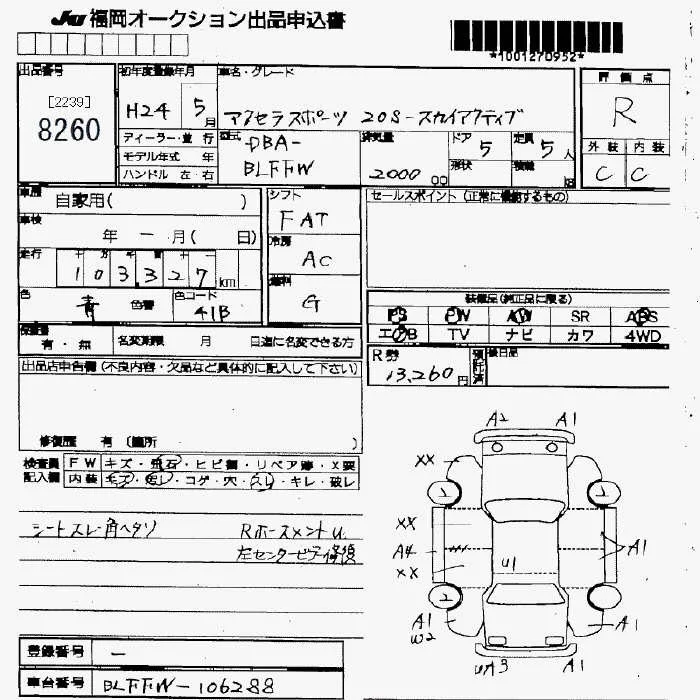 JU 福岡オークション出品申込書
*1001270952*
出品番号
[2239]
8260
初年度登録年月
H24 5月
車名・グレード
アクセラスポーツ 20S-スカイアクティブ
評価点
R
外装 内装
C C
ディーラー・並行
モデル年式 年
ハンドル 左・右
型式
DBA-
BLFFW
排気量
2000 cc
ドア
5
形状
定員
5人
積載
車歴
自家用( )
車検
年 ー 月( 日)
走行
103,327 km
色
青
色替
色コード
41B
シフト
FAT
冷房
AC
燃料
G
セールスポイント (正常に機能するもの)
装備品(純正品に限る)
PS PW AW SR ABS
エアB TV ナビ カワ 4WD
保証書
有・無
名変期限 月 日迄に名変できる方
R券
13,260円
預託済
後日品
出品店申告欄 (不良内容・欠品など具体的に記入して下さい)
修復歴 有 (箇所 )
検査員記入欄
FW キズ・飛石・ヒビ有・リペア済・X要
内装 キズ・汚レ・コゲ・穴・スレ・キレ・破レ
シートスレ角ヘタリ
RホースメントU.
左センターピラー修復
A2 A1
XX
2 2
XX
A4
XX
U1
A1
2 2
A1
W2
A1
UA3 A1
登録番号 ー
車台番号 BLFFW-106288